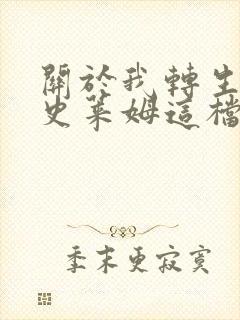 關於我轉生
史萊姆這檔
季末更寂寞